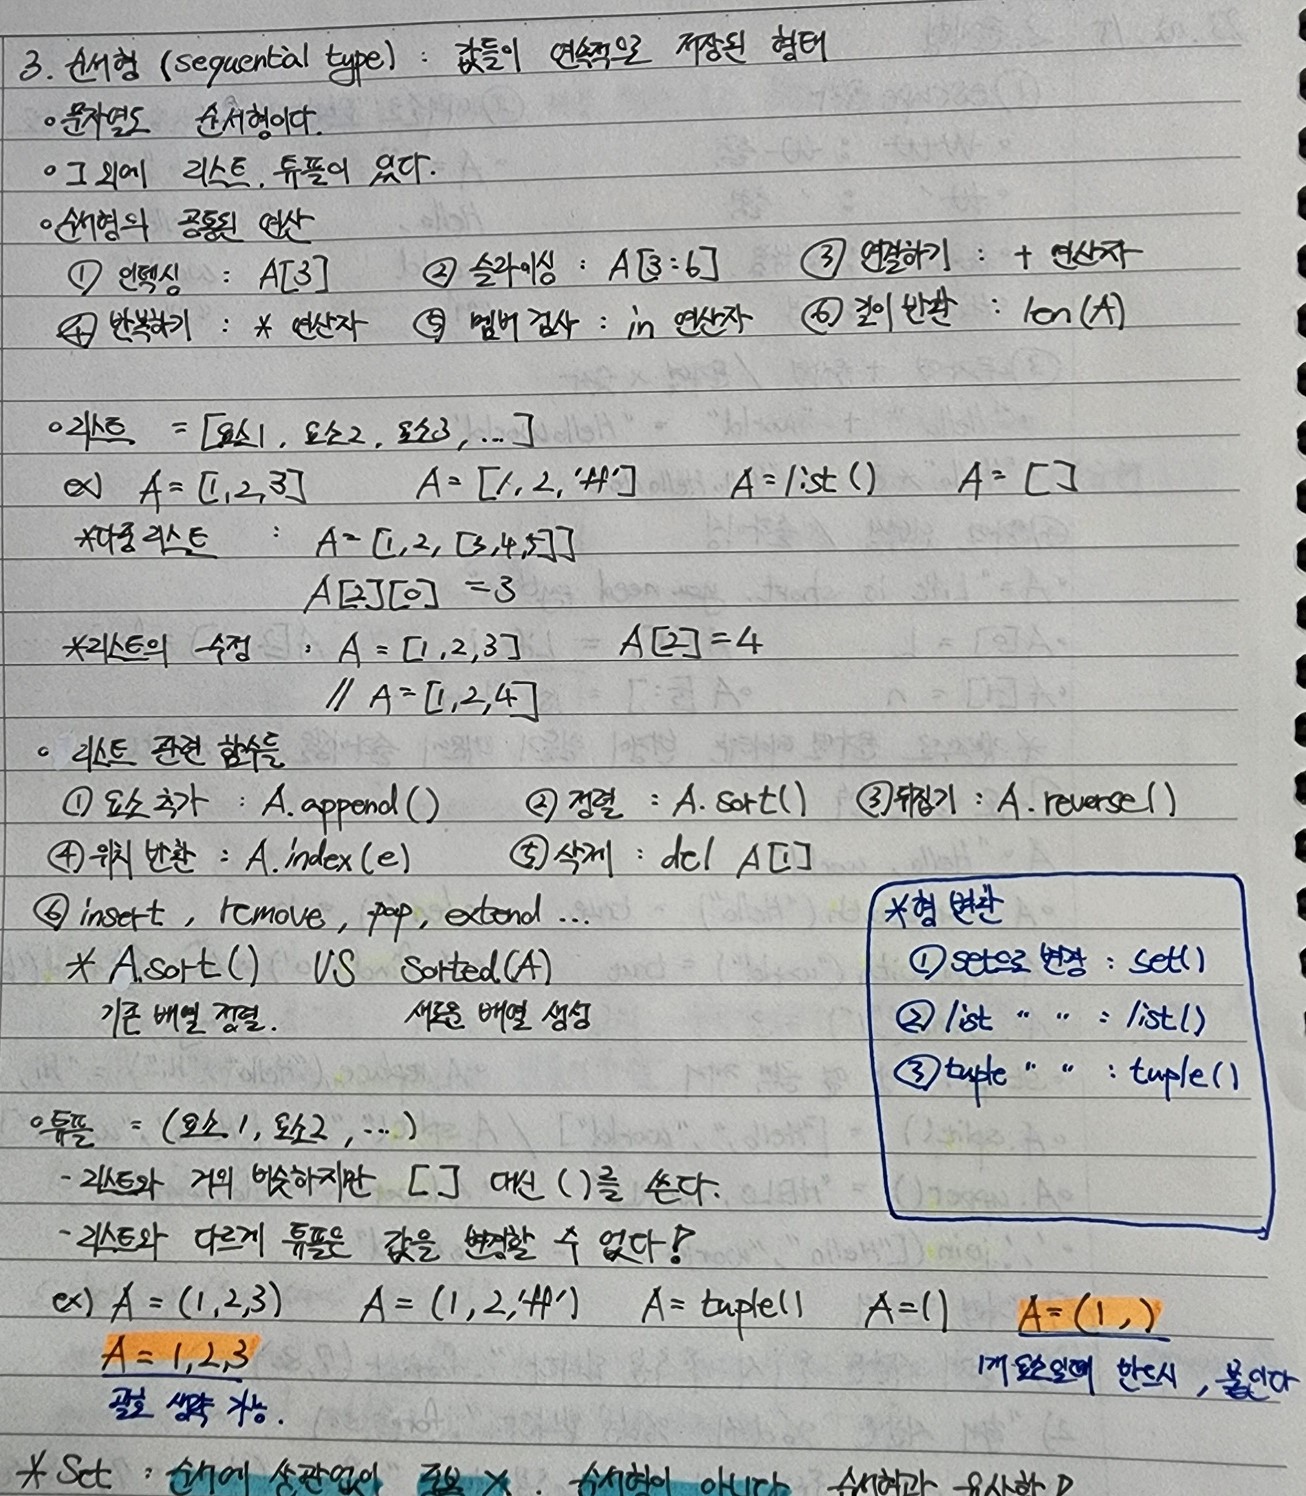 3. 순서형 (sequential type) : 값들이 연속적으로 저장된 형태
◦ 문자열도 순서형이다.
◦ 그 외에 리스트, 튜플이 있다.
◦ 순서형의 공통된 연산
① 인덱싱 : A[3] ② 슬라이싱 : A[3:6] ③ 연결하기 : + 연산자
④ 반복하기 : * 연산자 ⑤ 멤버 검사 : in 연산자 ⑥ 길이 반환 : len(A)
◦ 리스트 = [요소1, 요소2, 요소3, ...]
ex) A = [1,2,3] A = [1, 2, 'A'] A = list() A = []
*다중 리스트 : A = [1,2, [3,4,5]]
A[2][0] = 3
*리스트의 수정 : A = [1,2,3] A[2] = 4
// A = [1,2,4]
◦ 리스트 관련 함수들
① 요소 추가 : A.append() ② 정렬 : A.sort() ③ 뒤집기 : A.reverse()
④ 위치 반환 : A.index(e) ⑤ 삭제 : del A[1]
⑥ insert, remove, pop, extend ...
* A.sort() VS sorted(A)
기존 배열 정렬. 새로운 배열 생성
*형 변환
① set으로 변경 : set()
② list " " : list()
③ tuple " " : tuple()
◦ 튜플 = (요소1, 요소2, ...)
- 리스트와 거의 비슷하지만 [] 대신 ()를 쓴다.
- 리스트와 다르게 튜플은 값을 변경할 수 없다!
ex) A = (1,2,3) A = (1, 2, 'A') A = tuple() A = () A = (1, )
A = 1,2,3 1개 요소일때 반드시 , 붙인다
괄호 생략 가능.
* Set : 순서에 상관없이 중복 X. 순서형이 아니다 순서형과 유사할